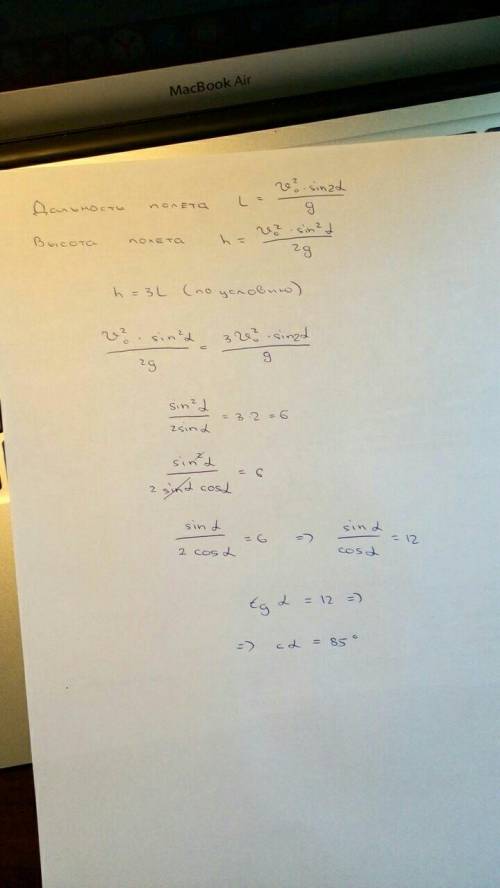 MacBook Air
Дальность полёта L = v₀² · sin2α / g
Высота полёта h = v₀² · sin²α / 2g
h = 3L (по условию)
v₀² · sin²α / 2g = 3v₀² · sin2α / g
sin²α / 2sinα = 3·2 = 6
sin²α / 2 sinα cosα = 6
sinα / 2 cosα = 6 => sinα / cosα = 12
tg α = 12 =>
=> cα = 85°